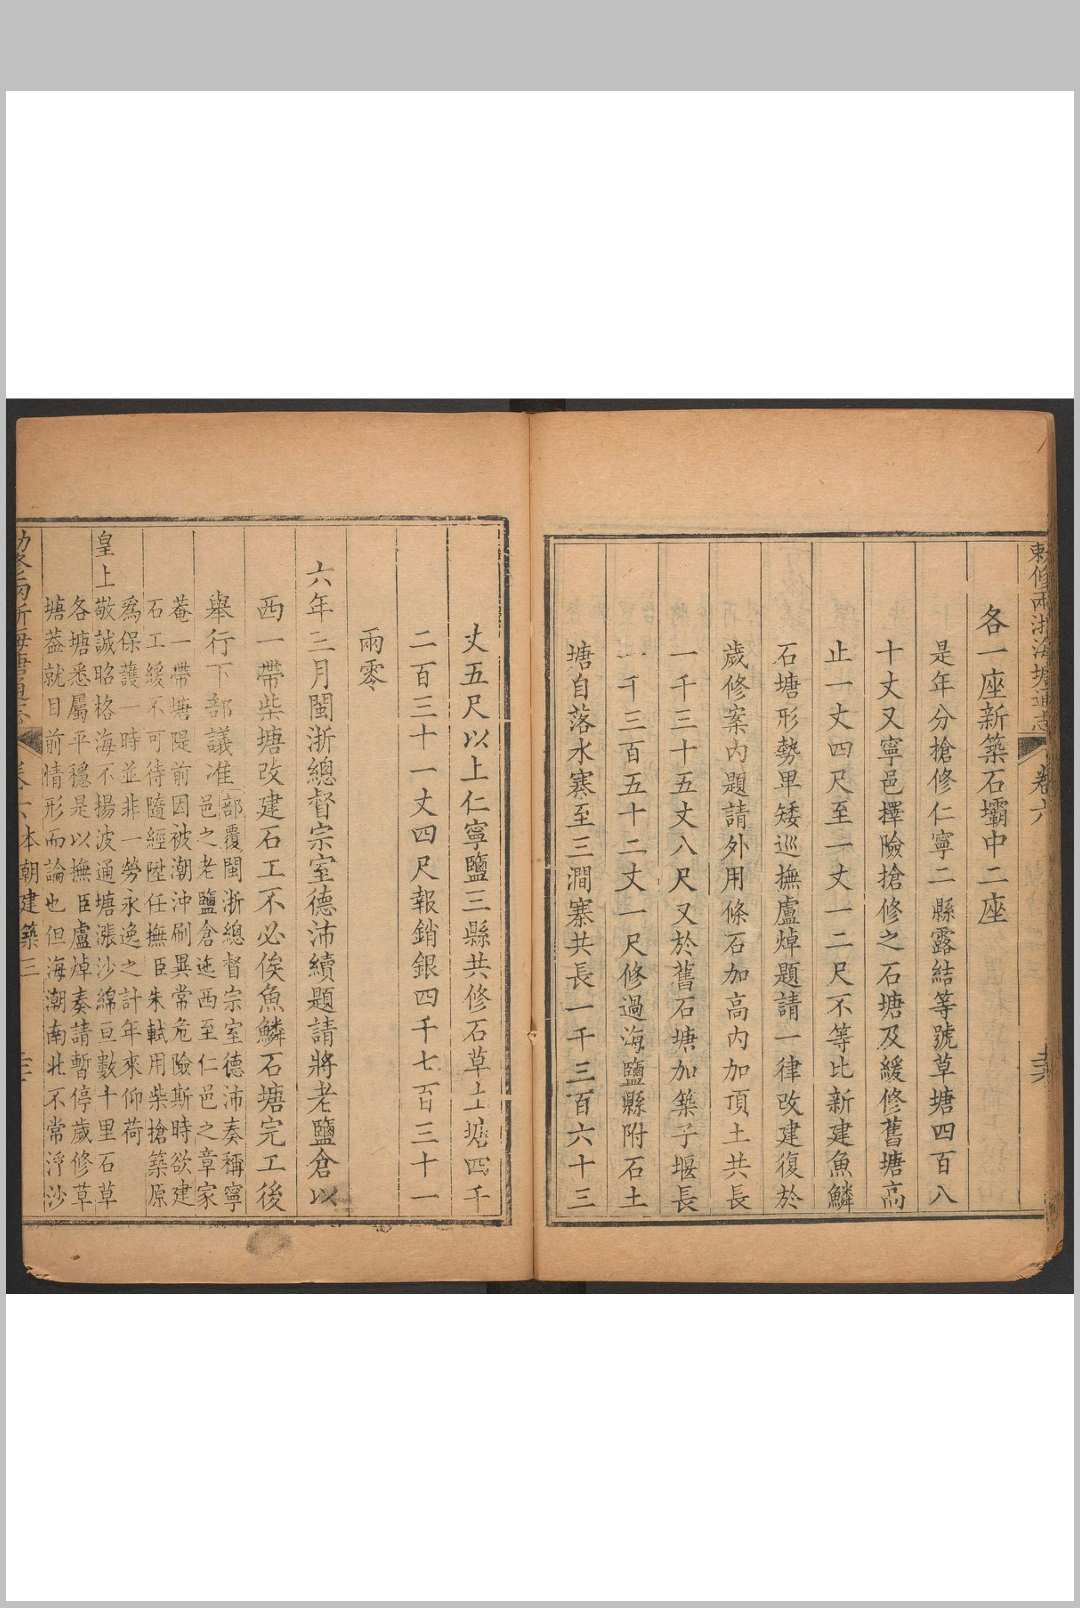 敕修兩浙海塘通志 卷六
各一座新築石壩中二座
是年分搶修仁寧二縣露結等號草塘四百八
十丈又寧邑擇險搶修之石塘及緩修舊塘高
止一丈四尺至一丈一二尺不等比新建魚鱗
石塘形勢卑矮巡撫盧焯題請一律改建復於
歲修案內題請外用條石加高內加頂土共長
一千三十五丈八尺又於舊石塘加築子堰長
一千三百五十二丈一尺修過海鹽縣附石土
塘自落水寨至三澗寨共長一千三百六十三
丈五尺以上仁寧鹽三縣共修石草土塘四千
二百三十一丈四尺報銷銀四千七百三十一
兩零
六年三月閩浙總督宗室德沛續題請將老鹽倉以
西一帶柴塘改建石工不必俟魚鱗石塘完工後
舉行下部議准
部覆閩浙總督宗室德沛奏稱寧
邑之老鹽倉迤西至仁邑之章家
菴一帶塘隄前因被潮沖刷異常危險斯時欲建
石工緩不可待隨經陞任撫臣朱軾用柴搶築原
爲保護一時並非一勞永逸之計年來仰荷
皇上敬誠昭格海不揚波通塘漲沙綿亘數十里石草
各塘悉屬平穩是以撫臣盧焯奏請暫停歲修草
塘葢就目前情形而論也但海潮南北不常浮沙
本朝建築三